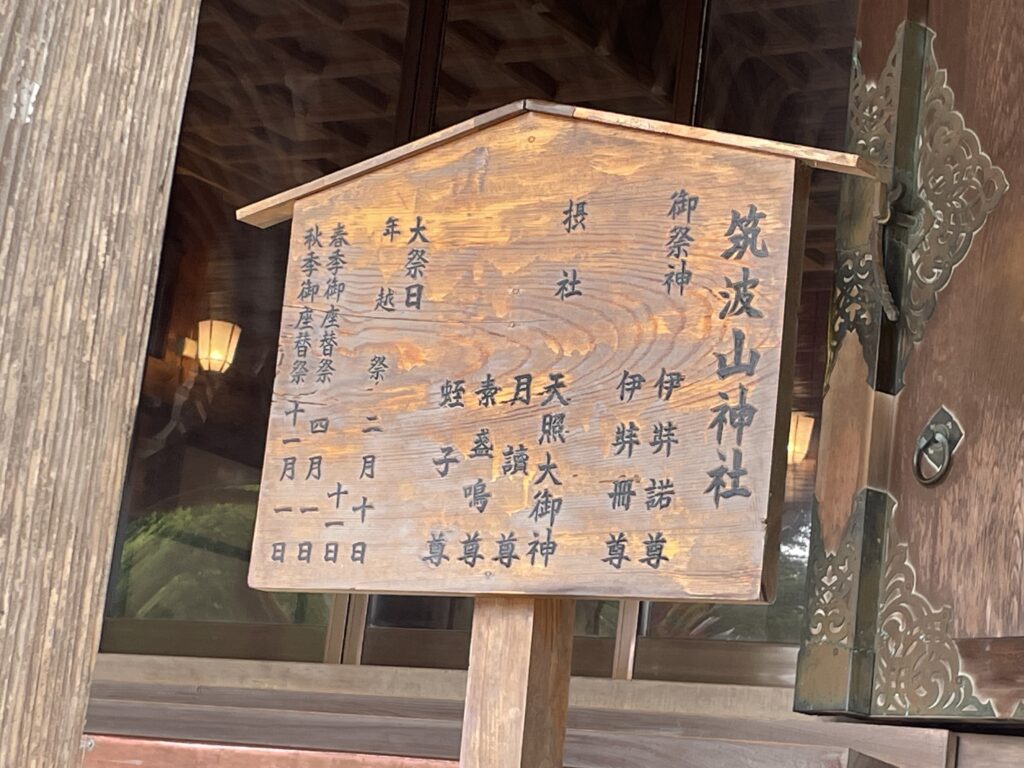 筑波山神社
御祭神
伊弉諾尊
伊弉冊尊
摂社
天照大御神
月讀尊
素盞鳴尊
蛭子尊
大祭日
年越祭 二月十日
十一日
春季御座替祭 四月一日
秋季御座替祭 十一月一日